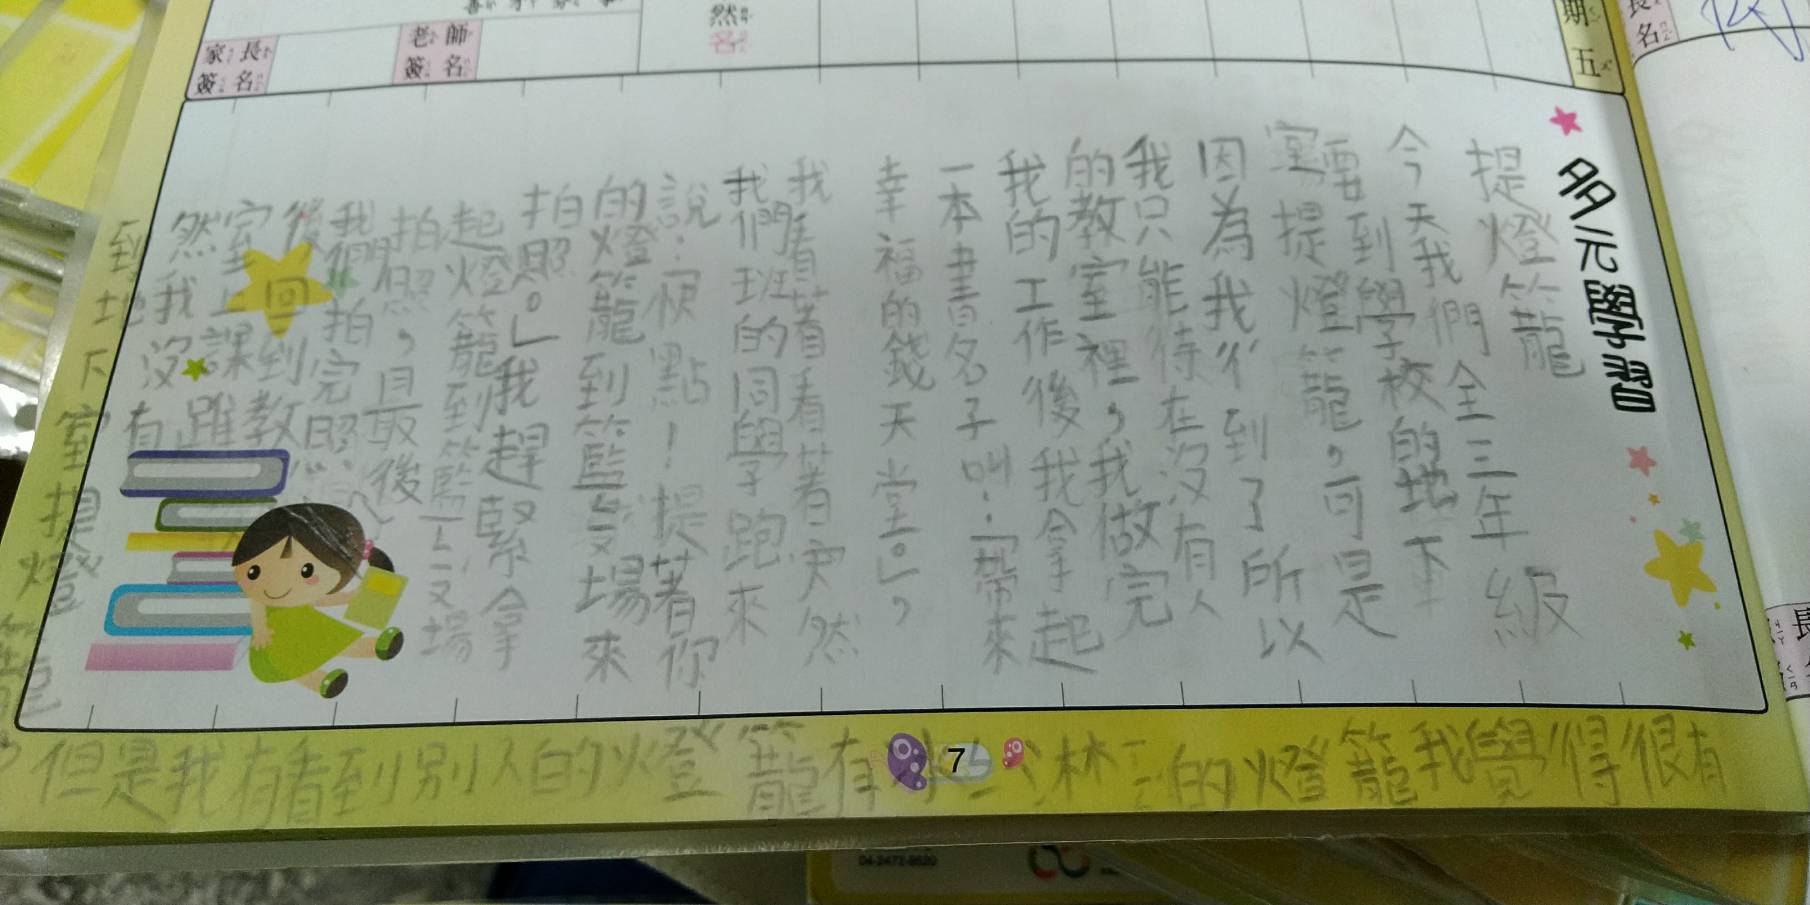 家長
簽名
老師
簽名
然
名
期
五
長
名
多元學習
提燈籠
今天我們全三年級
要到學校的地下
室提燈籠，可是
因為我ㄔ到了所以
我只能待在沒有人
的教室裡，我做完
我的工作後我拿起
一本書名子叫：「帶來
幸福的錢天堂。」，
我看著看著突然
我們班的同學跑來
說：快點！提著你
的燈籠到籃ㄑㄧㄡ場來
拍照。」我趕緊拿
起燈籠到籃ㄑㄧㄡ場
拍照，最後
我們拍完照
後回到教
室上課雖
然我沒有
到地下室提燈籠
但是我有看到別人的燈籠有
的燈籠我覺得很有
7
04-2472-9520